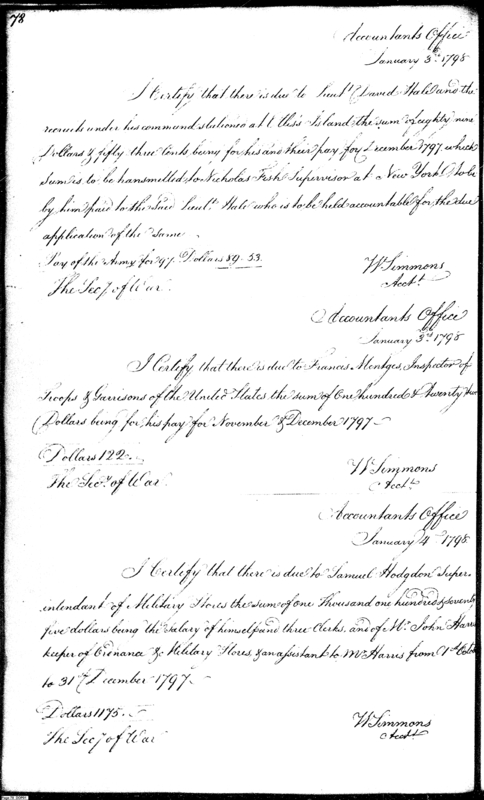 78
Accountants Office
January 3d 1798
I Certify that there is due to Lieut. David Hale and the
recruits under his command stationed at Island the sum of eighty nine
Dollars & fifty three Cents being for his and their pay for December 1797 which
Sum is to be transmitted to Nicholas Fish Supervisor at New York to be
by him paid to the said Lieut. Hale who is to be held accountable for the due
application of the same
Pay of the Army for 97. Dollars 89. 53.
W Simmons
Acct
The Secy. of War
Accountants Office
January 3d 1798
I Certify that there is due to Francis Mentges Inspector of
Troops & Garrisons of the United States the sum of One hundred & Twenty two
Dollars being for his pay for November & December 1797
Dollars 122
W Simmons
Acct
The Secy. of War
Accountants Office
January 4 1798
I Certify that there is due to Samuel Hodgdon Super-
intendant of Military Stores the sum of one Thousand one hundred & seventy
five dollars being the salary of himself and three Clerks, and of Mr. John Harris
keeper of Ordnance & Military Stores. & an assistant to Mr Harris from 1st
to 31st December 1797
Dollars 1175.
W Simmons
Acct
The Secy. of War